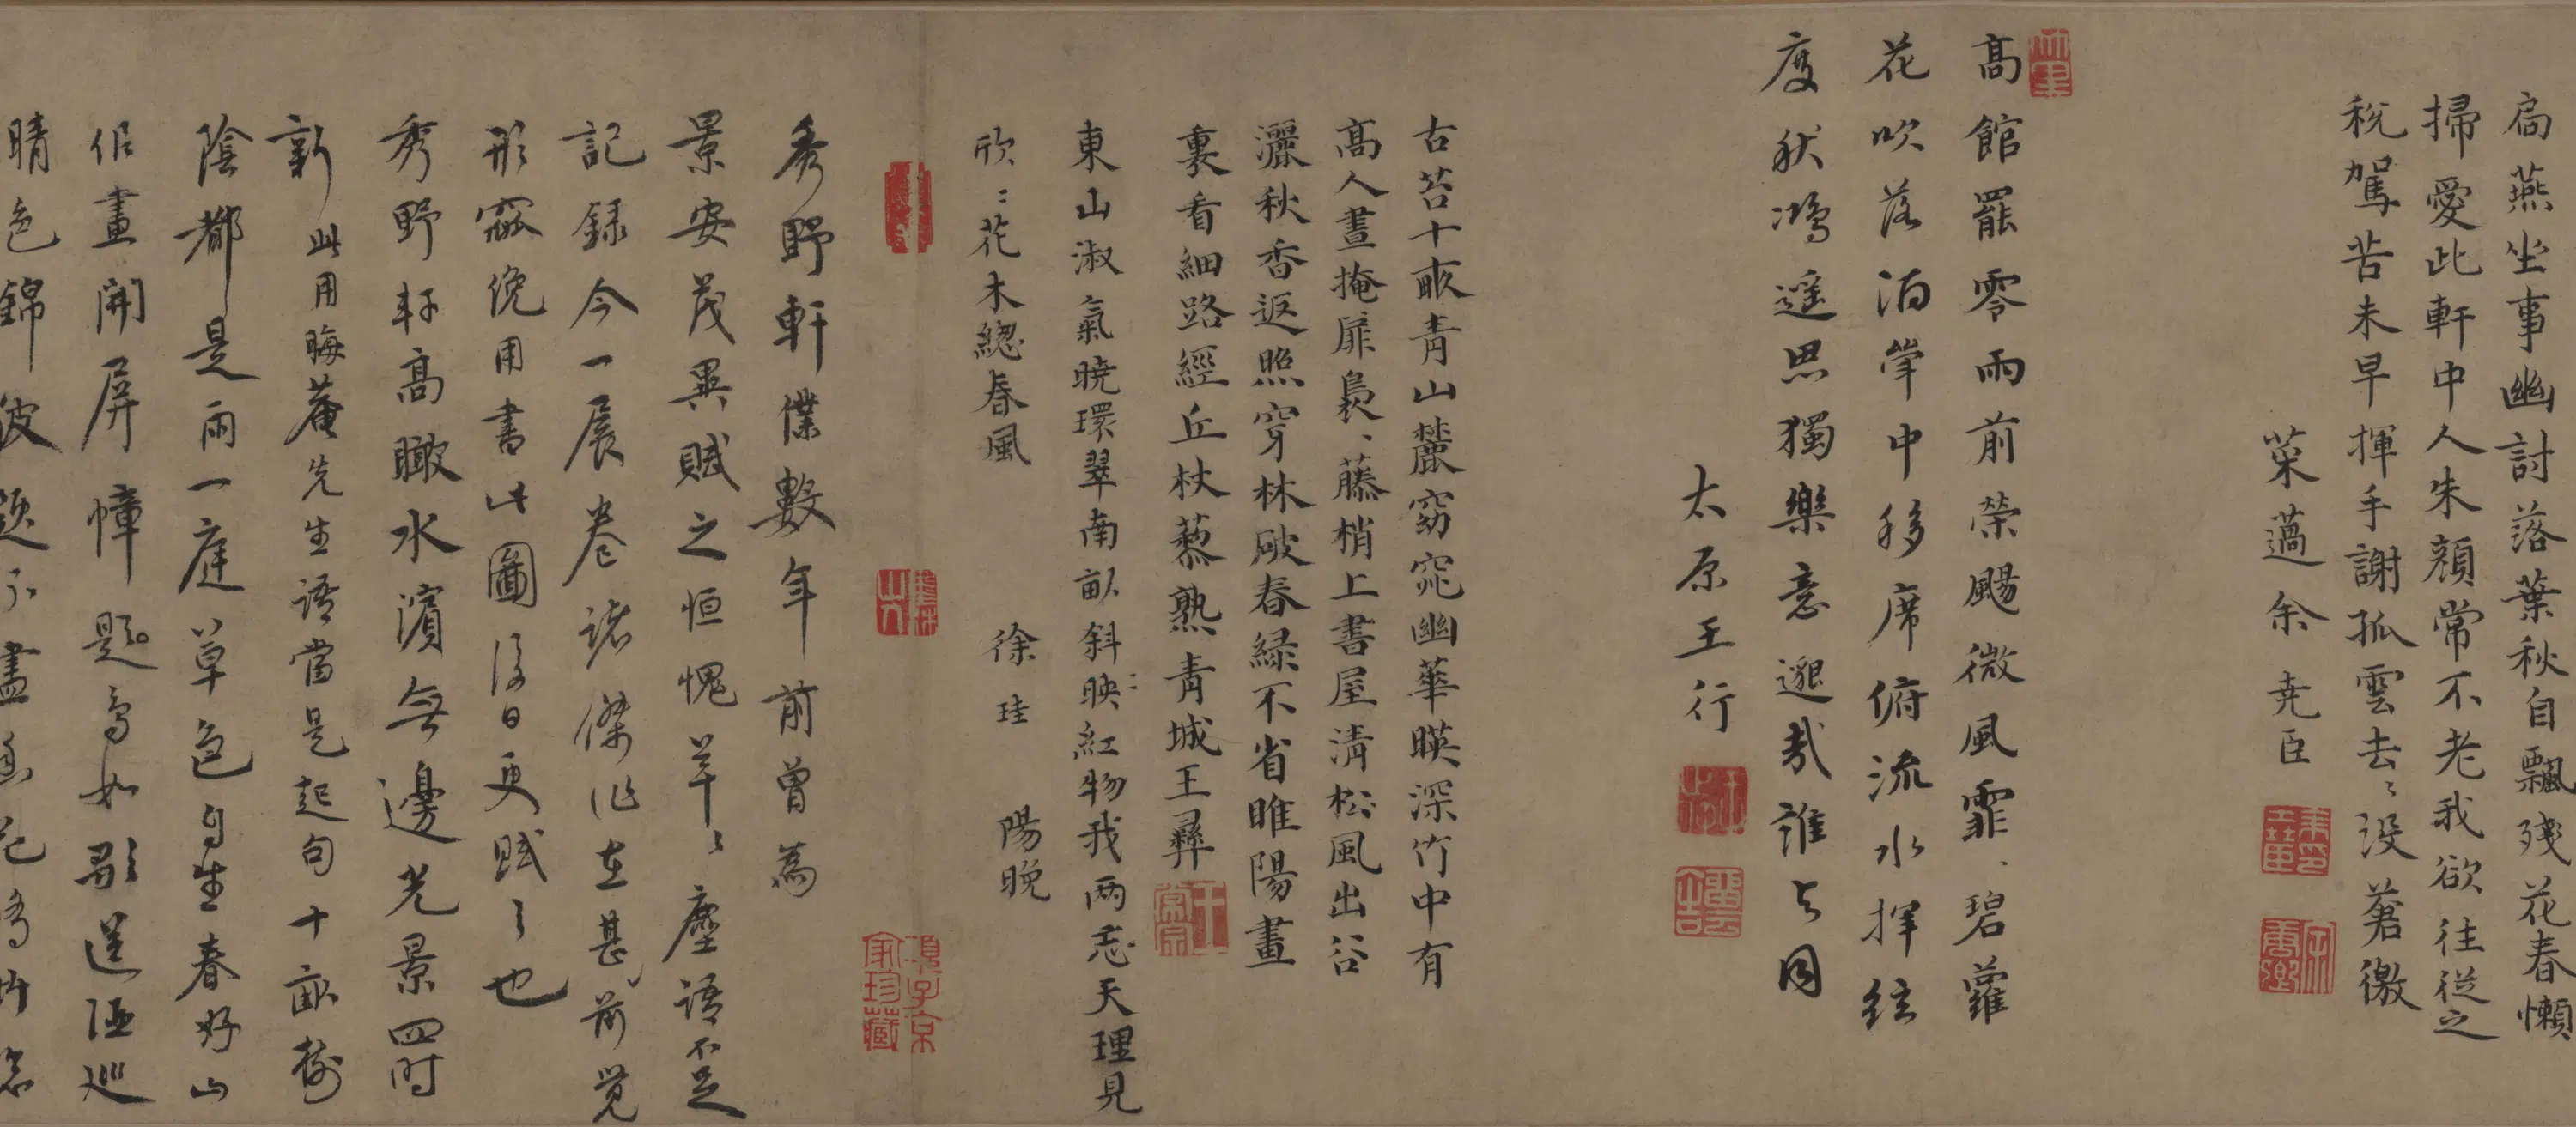 扃燕坐事幽討落葉秋自飄殘花春懶
掃愛此軒中人朱顏常不老我欲往從之
稅駕苦未早揮手謝孤雲去〻没蒼徼
菜薖余堯臣
高館罷零雨前榮颺微風霏〻碧蘿
花吹落泊掌中移席俯流水揮絃
度秋鴻遥思獨樂意邈哉誰與同
太原王行
古苔十畝青山麓窈窕幽華暎深竹中有
高人晝掩扉裊〻藤梢上書屋清松風出谷
灑秋香返照穿林破春緑不省睢陽畫
裏看細路經丘杖藜熟青城王彝
東山淑氣曉環翠南畝斜〻映紅物我兩忘天理見
欣〻花木總春風 徐珪 陽晚
秀野軒僕數年前曾為
景安茂異賦之恒愧草〻塵語不足
記録今一展卷諸傑作在甚前覺
形窳俛用書此圖後日更賦之也
秀野軒高瞰水濱無邊光景四時
新 此用晦菴先生語當是起句 十畝樹
陰都是雨一庭草色自生春好山
似畫開屏幛題鳥如歌送酒巡
晴色錦波題不盡
項子京家珍藏